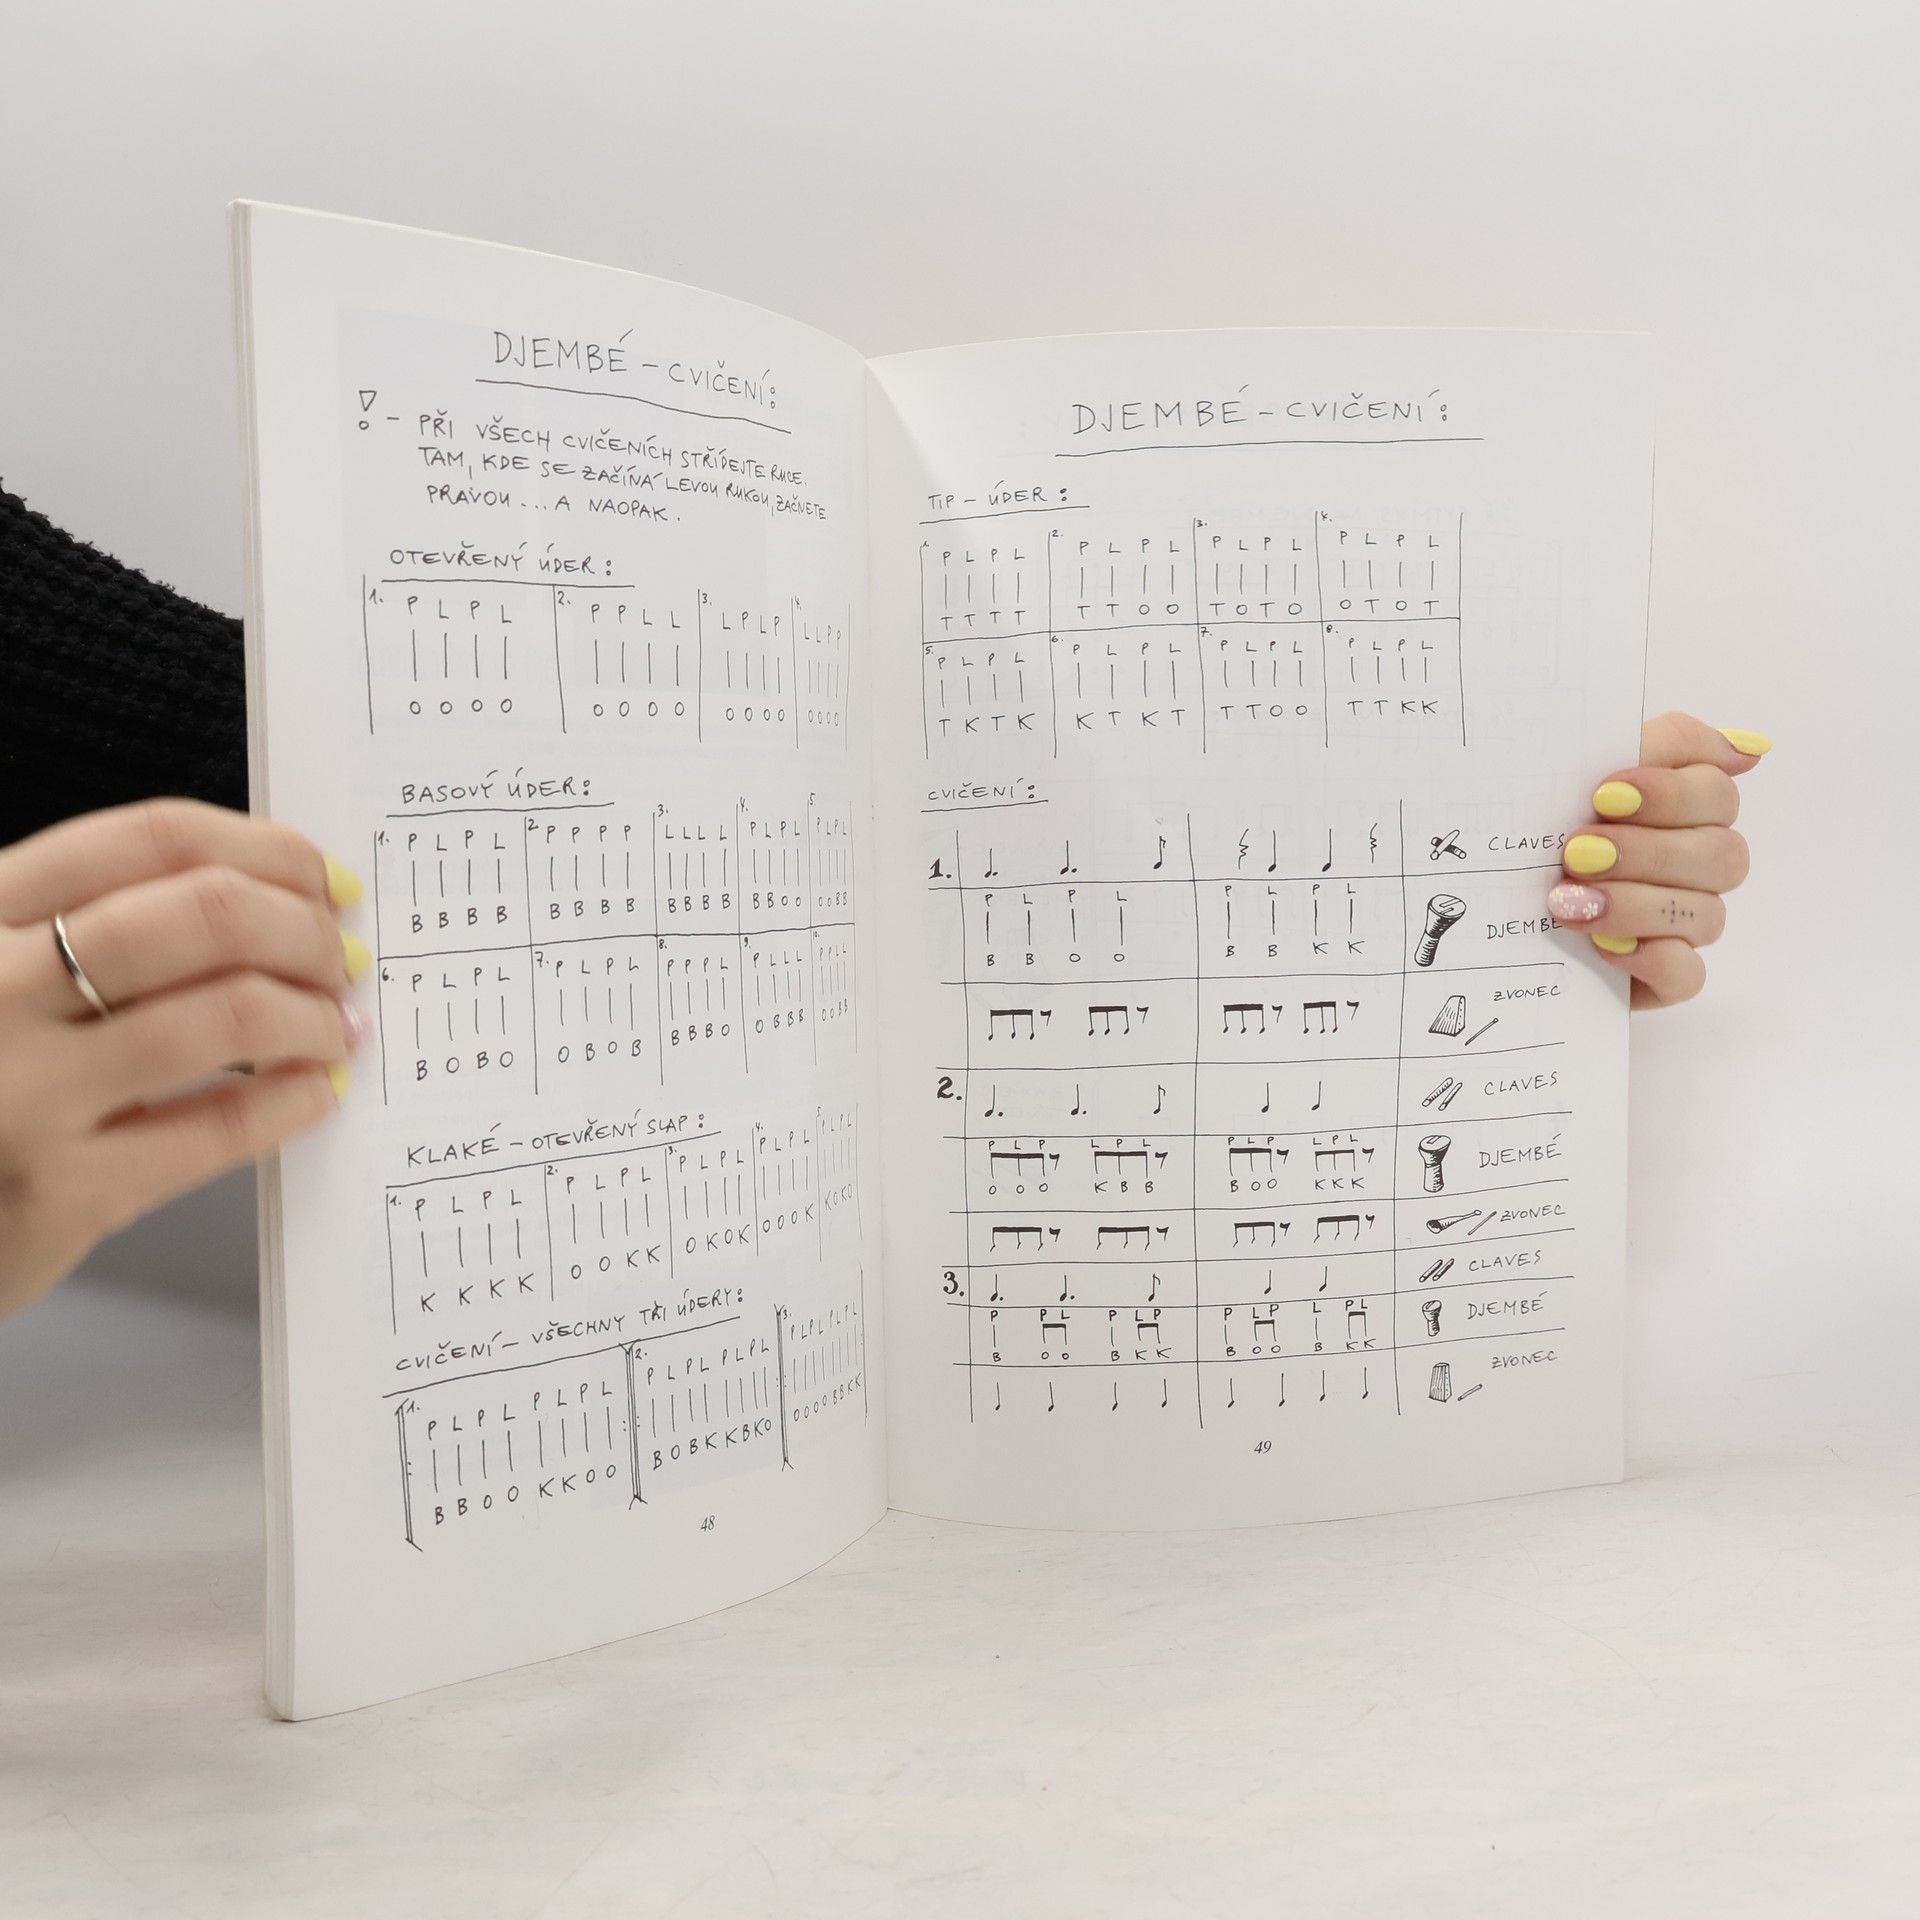 DJEMBÉ – CVIČENÍ:
! – PŘI VŠECH CVIČENÍCH STŘÍDEJTE RUCE.
TAM, KDE SE ZAČÍNÁ LEVOU RUKOU, ZAČNETE
PRAVOU ... A NAOPAK.
OTEVŘENÝ ÚDER:
1. P L P L 2. P P L L 3. L P L P 4. L L P P
O O O O O O O O O O O O O O O O
BASOVÝ ÚDER:
1. P L P L 2. P P P P 3. L L L L 4. P L P L 5. P L P L
B B B B B B B B B B B B B B O O O O B B
6. P L P L 7. P L P L 8. P P P L 9. P L L L 10. P P L L
B O B O O B O B B B B O O B B B O O B B
KLAKÉ – OTEVŘENÝ SLAP:
1. P L P L 2. P L P L 3. P L P L 4. P L P L 5. P L P L
K K K K O O K K O K O K O O O K K O K O
CVIČENÍ – VŠECHNY TŘI ÚDERY:
1. P L P L P L P L 2. P L P L P L P L 3. P L P L P L P L
B B O O K K O O B O B K K B K O O O O O B B K K
48
DJEMBÉ – CVIČENÍ:
TIP – ÚDER:
1. P L P L 2. P L P L 3. P L P L 4. P L P L
T T T T T T O O T O T O O T O T
5. P L P L 6. P L P L 7. P L P L 8. P L P L
T K T K K T K T T T O O T T K K
CVIČENÍ:
1. CLAVES
P L P L P L P L
DJEMBÉ
B B O O B B K K
ZVONEC
2. CLAVES
P L P L P L P L P L P L
DJEMBÉ
O O O K B B B O O K K K
ZVONEC
3. CLAVES
P P L P L P P L P L P L
DJEMBÉ
B O O B K K B O O B K K
ZVONEC
49